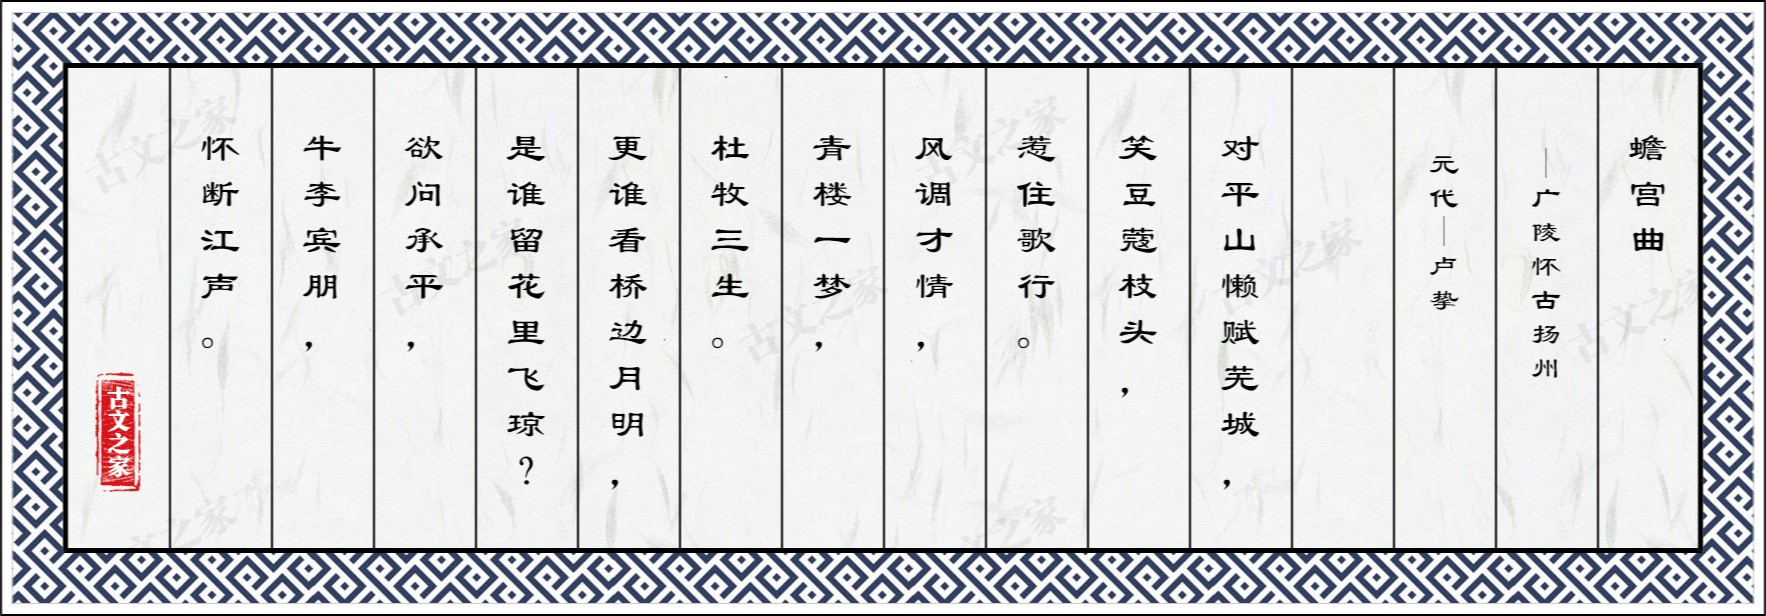 蟾宫曲
—广陵怀古扬州
元代—卢挚
对平山懒赋芜城，
笑豆蔻枝头，
惹住歌行。
风调才情，
青楼一梦，
杜牧三生。
更谁看桥边月明，
是谁留花里飞琼？
欲问承平，
牛李宾朋，
怀断江声。
古文之家